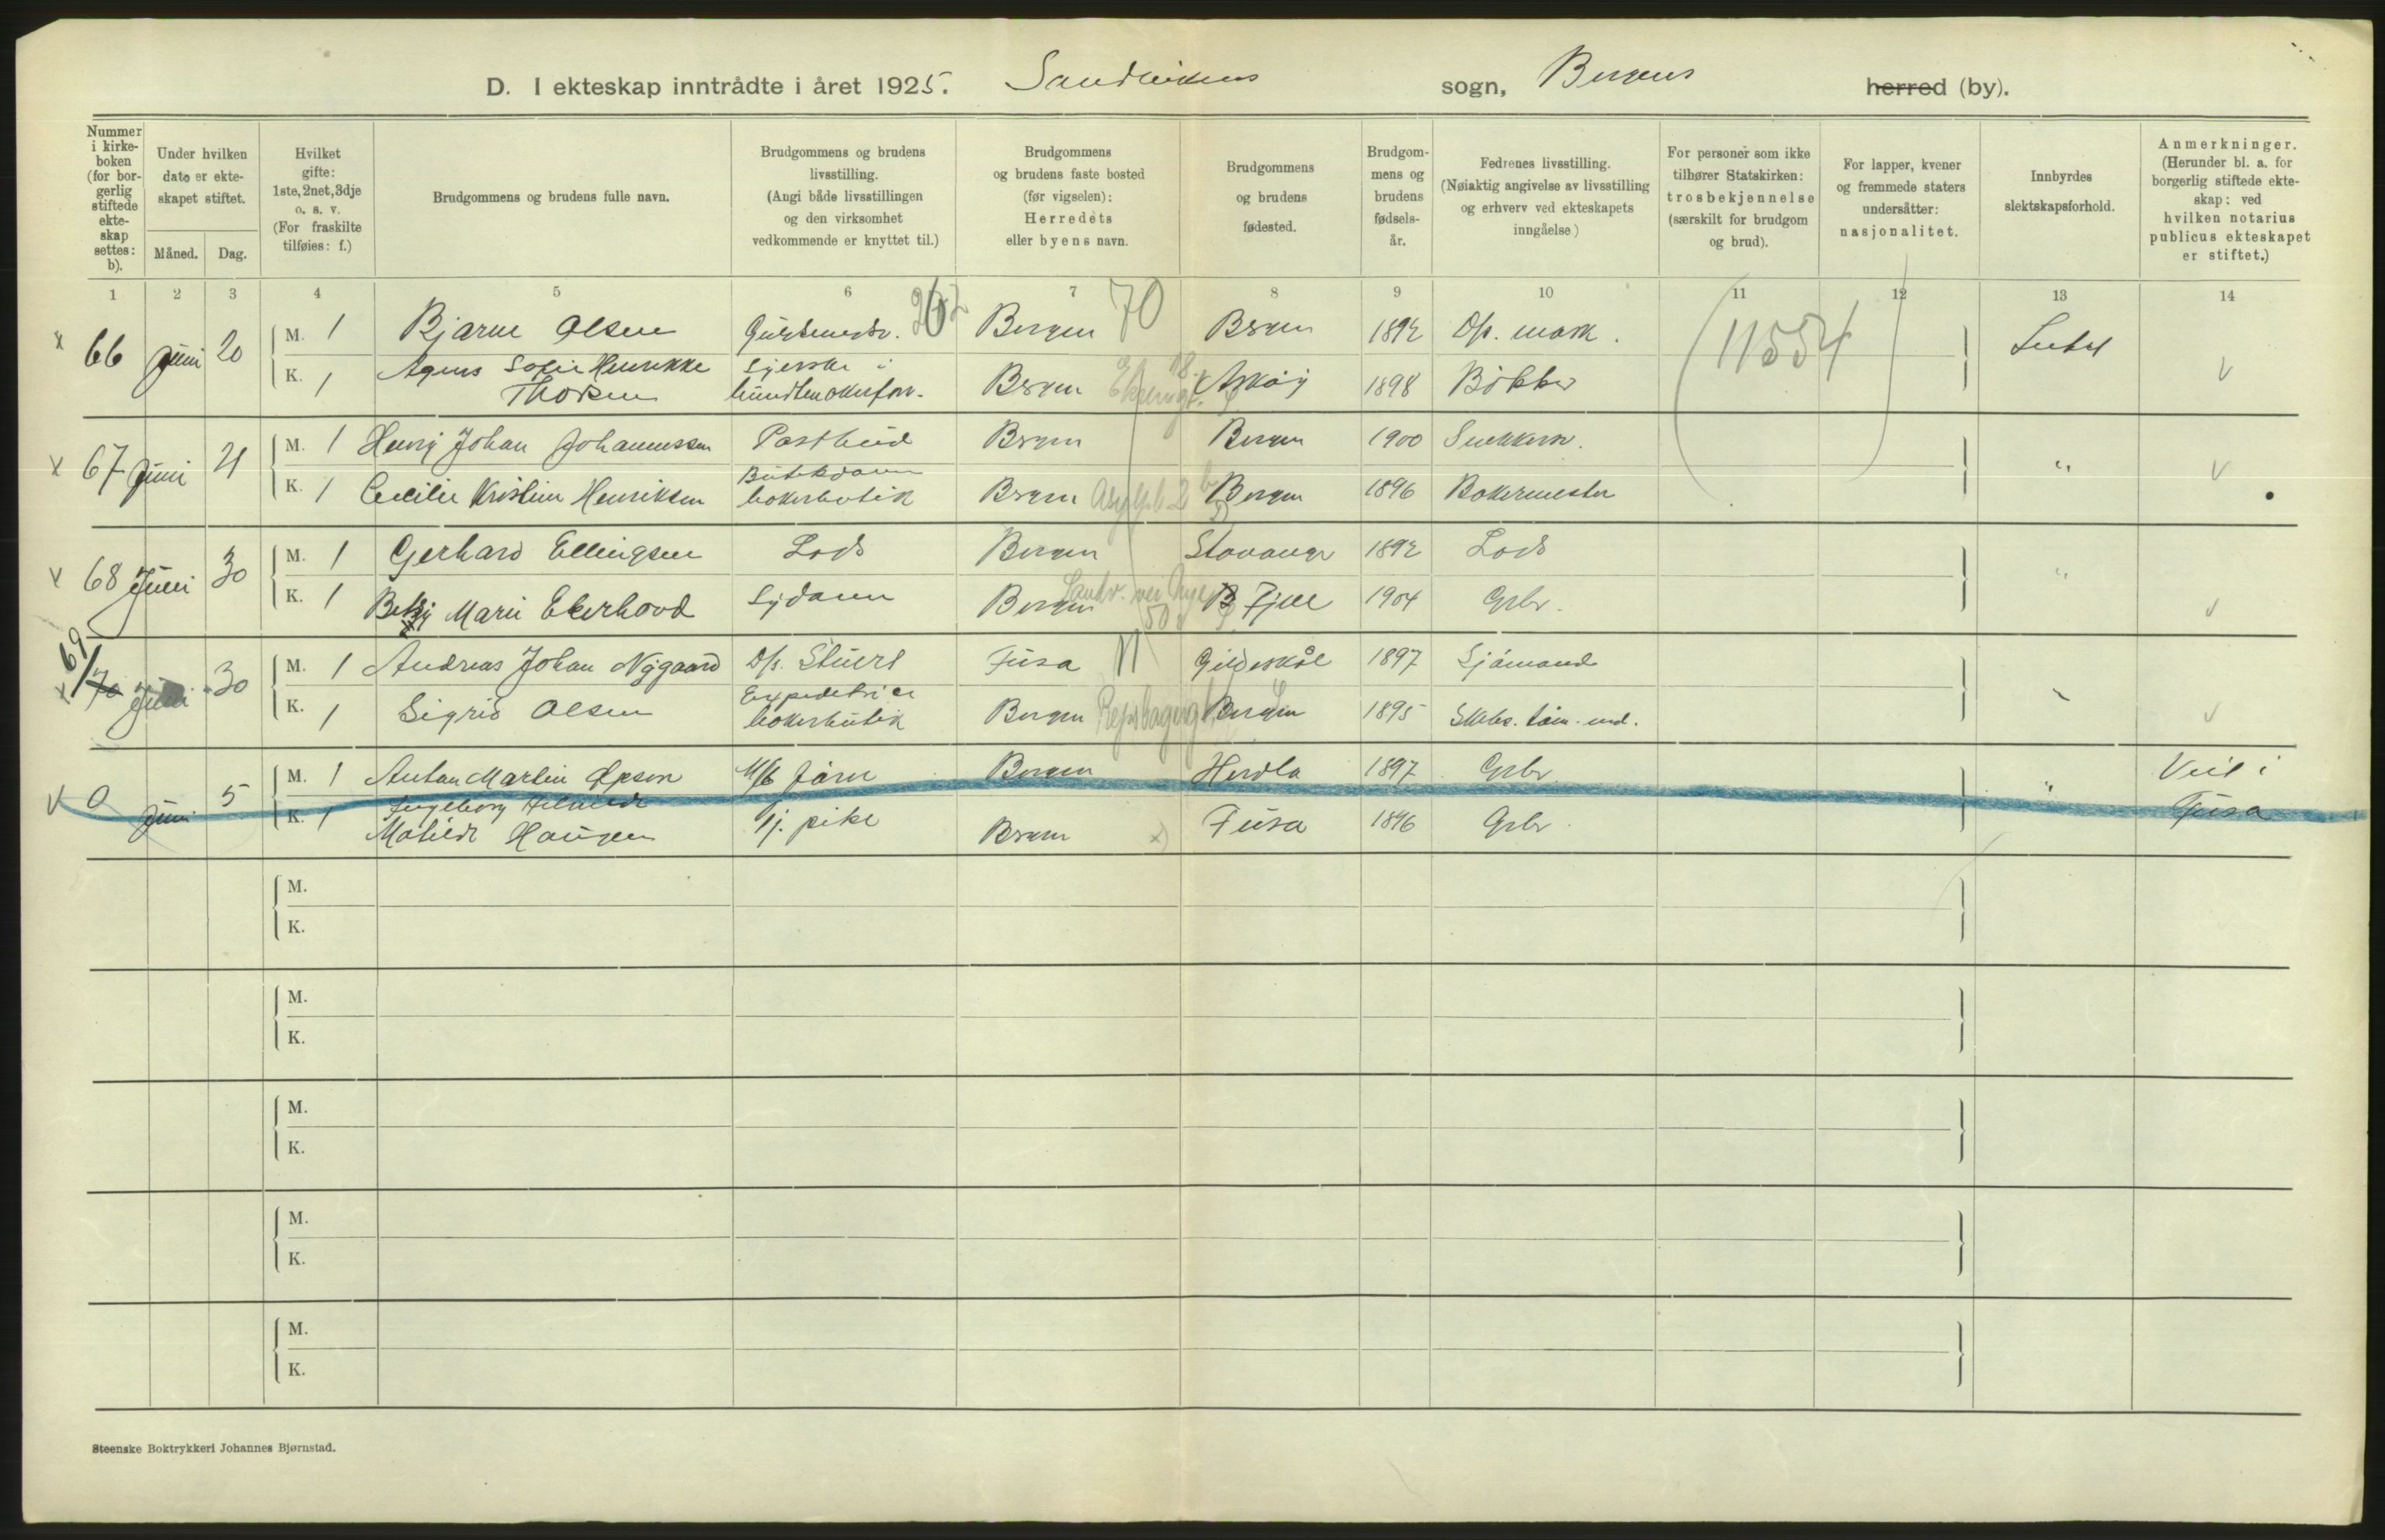 D. I ekteskap inntrådte i året 1925. Sandvikens sogn, Bergens herred (by).
Nummer i kirkeboken (for borgerlig stiftede ekteskap settes: b).
Under hvilken dato er ekteskapet stiftet.
Måned. Dag.
Hvilket gifte: 1ste, 2net, 3dje o. s. v. (For fraskilte tilføies: f.)
Brudgommens og brudens fulle navn.
Brudgommens og brudens livsstilling. (Angi både livsstillingen og den virksomhet vedkommende er knyttet til.)
Brudgommens og brudens faste bosted (før vigselen): Herredets eller byens navn.
Brudgommens og brudens fødested.
Brudgommens og brudens fødselsår.
Fedrenes livsstilling. (Nøiaktig angivelse av livsstilling og erhverv ved ekteskapets inngåelse)
For personer som ikke tilhører Statskirken: trosbekjennelse (særskilt for brudgom og brud).
For lapper, kvener og fremmede staters undersåtter: nasjonalitet.
Innbyrdes slektskapsforhold.
Anmerkninger. (Herunder bl. a. for borgerlig stiftede ekteskap: ved hvilken notarius publicus ekteskapet er stiftet.)
1 2 3 4 5 6 7 8 9 10 11 12 13 14
x 66 Juni 20 M. 1 Bjarne Olsen Bergen 70 Bergen 1892 D/s. mask. (11554)
K. 1 Agnes Sofie Henrikke Thorsen Syerske i Bergen Askøy 1898 Bøkker v
x 67 Juni 21 M. 1 Henry Johan Johannessen Postbud Bergen Bergen 1900 Snekkersv. "
K. 1 Cecilie Kristine Henriksen Butikdame bakerbutik Bergen Bergen 1896 Bakermester v
x 68 Juni 30 M. 1 Gerhard Ellingsen Lods Bergen Stavanger 1892 Lods "
K. 1 Betsy Marie Ekerhovd Sydame Bergen Fjell 1904 Grbr. v
69
x 70 Juni 30 M. 1 Andreas Johan Nygaard D/s. Stuert Fusa Gildeskål 1897 Sjømand
K. 1 Sigrid Olsen Expeditrice bakerbutik Bergen Bergen 1895 v
v 0 Juni 5 M. 1 Anton Martin Bergen Herdla 1897 Grbr. " Viet i
K. 1 Ingeborg Matilde Haugen Tj. pike Bergen x) Fusa 1896 Grbr. Fusa
M.
K.
M.
K.
M.
K.
M.
K.
M.
K.
Steenske Boktrykkeri Johannes Bjørnstad.